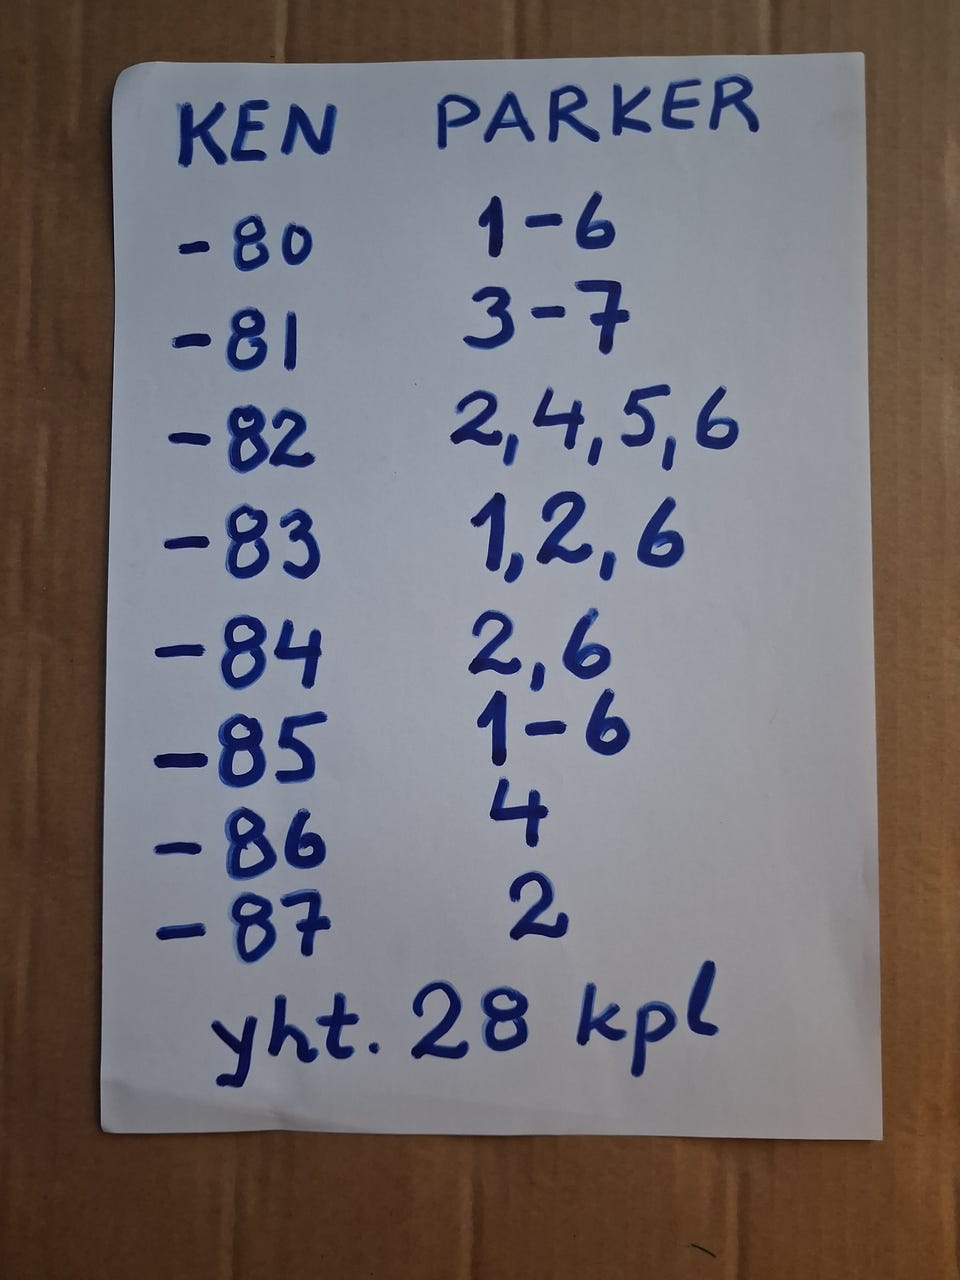 KEN PARKER
-80 1-6
-81 3-7
-82 2,4,5,6
-83 1,2,6
-84 2,6
-85 1-6
-86 4
-87 2
yht. 28 kpl